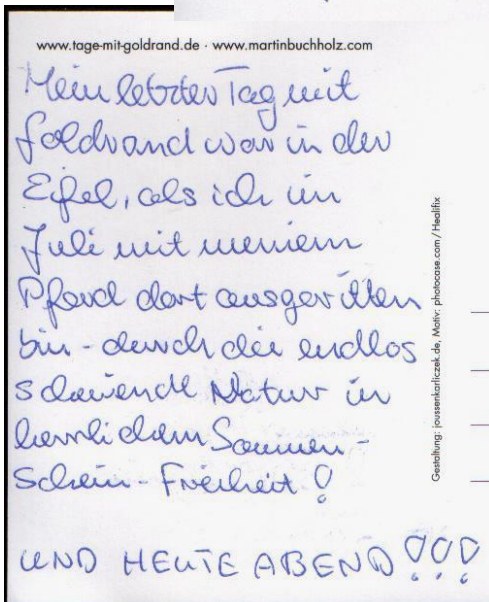 www.tage-mit-goldrand.de · www.martinbuchholz.com
Mein letzter Tag mit
Goldrand war in der
Eifel, als ich im
Juli mit meinem
Pferd dort ausgeritten
bin - durch die endlos
scheinende Natur in
herrlichem Sonnen-
schein - Freiheit!
UND HEUTE ABEND!!!
Gestaltung: joussenkarliczek.de, Motiv: photocase.com / Healifix